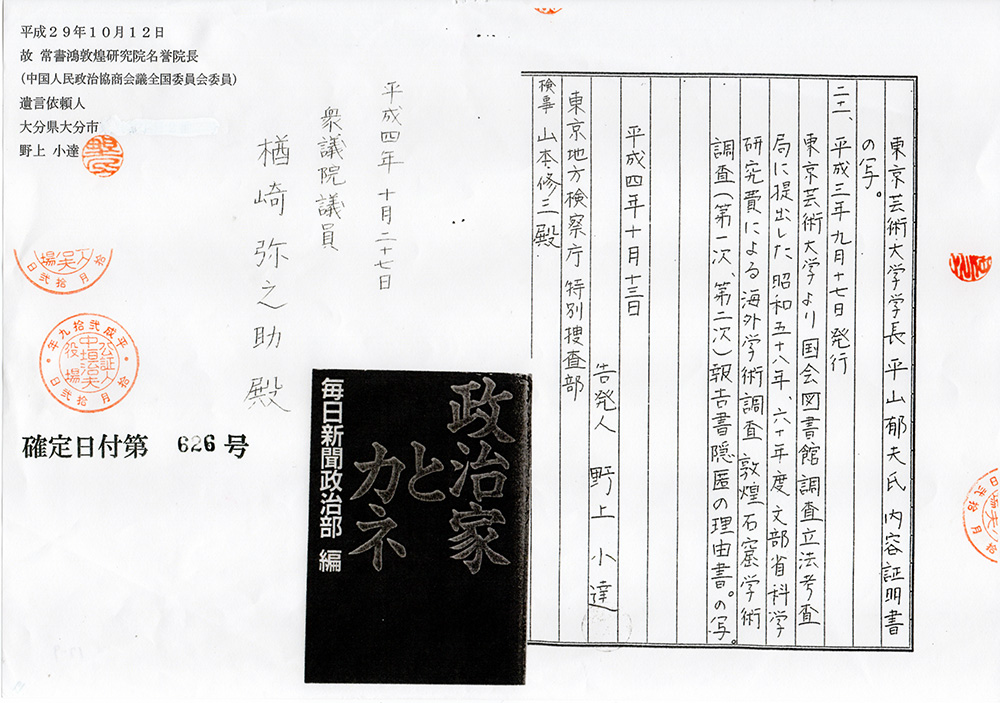 平成29年10月12日
故 常書鴻敦煌研究院名誉院長
(中国人民政治協商会議全国委員会委員)
遺言依頼人
大分県大分市
野上 小達
平成弐拾九年
公証人
中垣治夫
役場
拾月拾弐日
確定日付第 626 号
平成四年 十月二十七日
衆議院議員
楢崎弥之助 殿
政治家
と
カネ
毎日新聞政治部 編
東京芸術大学学長 平山郁夫氏 内容証明書
の写。
二十一、平成三年九月十七日発行
東京芸術大学より国会図書館調査立法考査
局に提出した昭和五十八年、六十年度文部省科学
研究費による海外学術調査 敦煌石窟学術
調査(第一次、第二次)報告書隠匿の理由書。の写。
平成四年十月十三日
告発人 野上小達
東京地方検察庁 特別捜査部
検事 山本修三殿